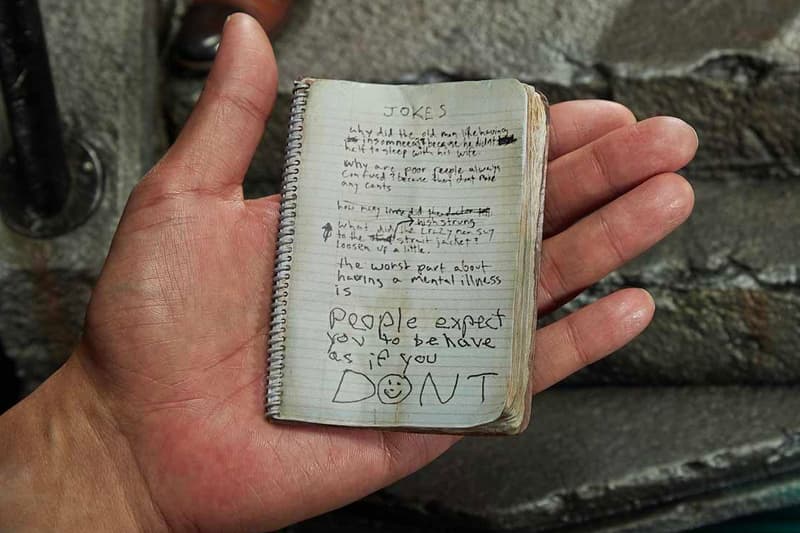 JOKES
why did the old man like having
insomneea? because he didnt
haft to sleep with his wife.
why are poor people always
confused? because they dont
any cents
how many did the doctor
high strung
What did the crazy man say
to the strait jacket?
loosen up a little.
the worst part about
having a mental illness
is
people expect
you to behave
as if you
DONT